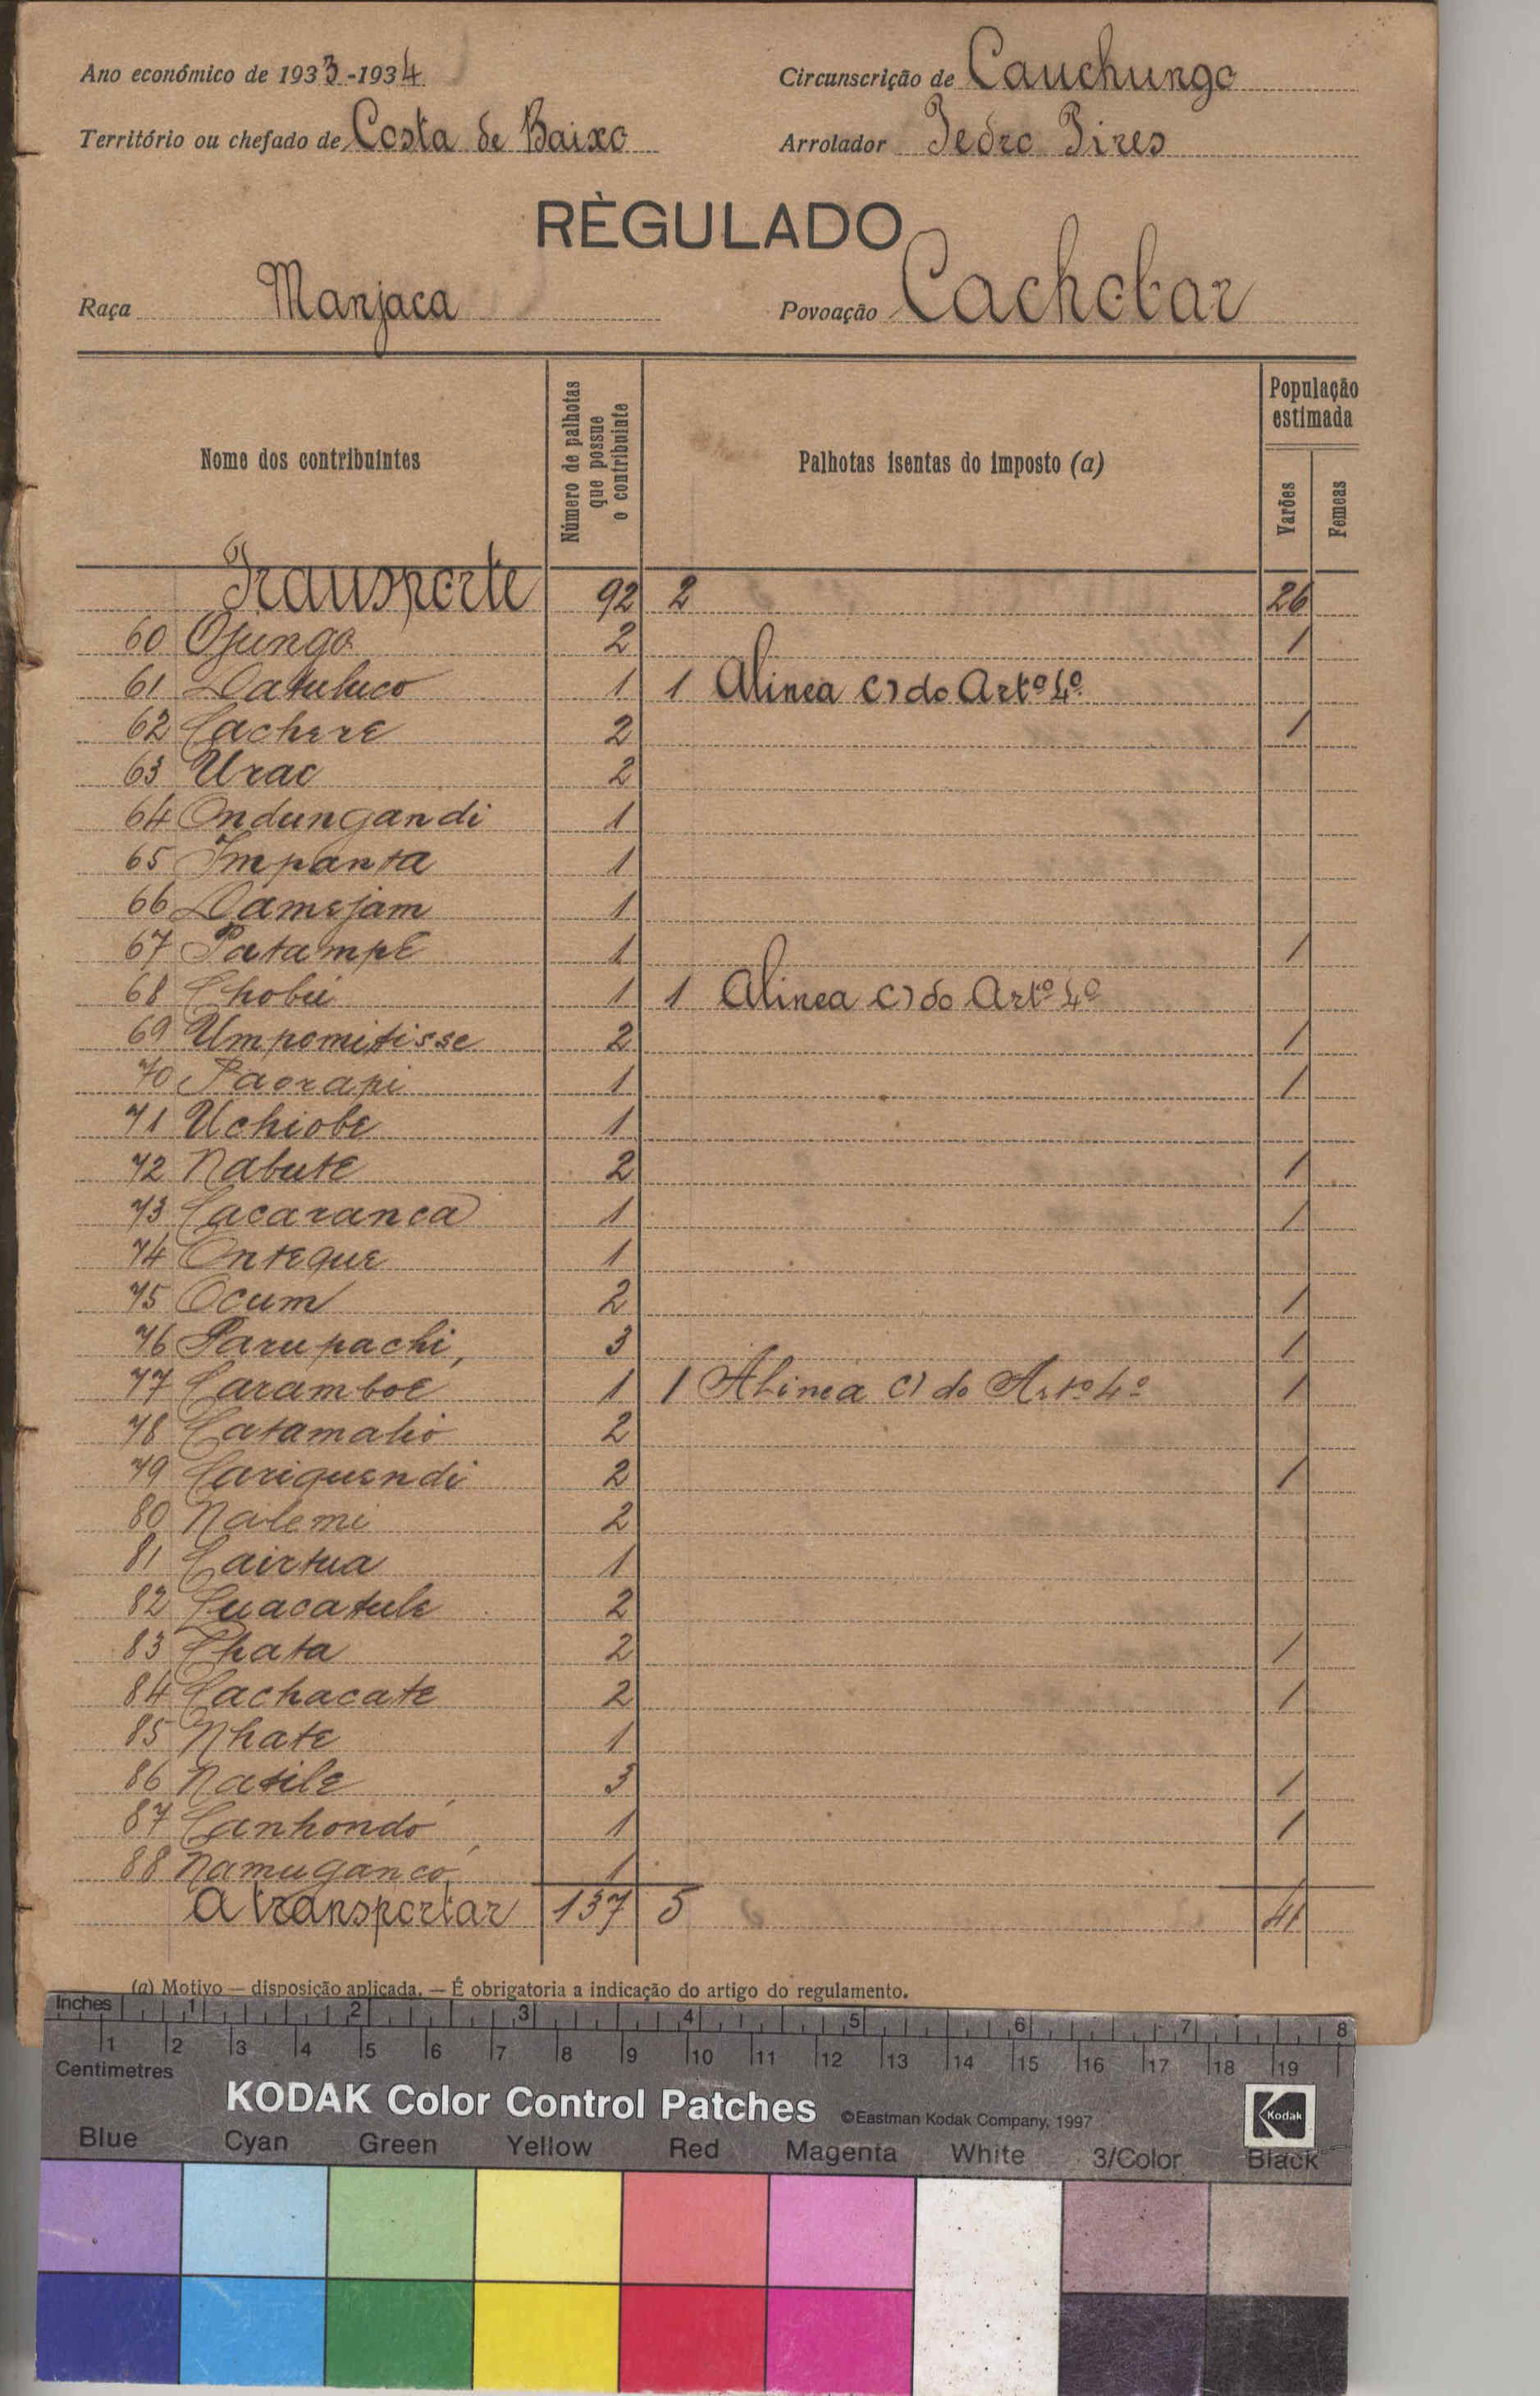 Ano económico de 1933-1934
Circunscrição de Cauchungo
Território ou chefado de Costa de Baixo
Arrolador Pedro Pires
RÈGULADO
Raça Manjaca
Povoação Cachobar
Nome dos contribuintes
Número de palhotas que possue o contribuinte
Palhotas isentas do imposto (a)
População estimada
Varões
Femeas
Transporte 92 2 26
60 Ojungo 2 1
61 Datuluco 1 1 Alinea c) do Artº 4º
62 Cachere 2 1
63 Urac 2
64 Ondungandi 1
65 Impanta 1
66 Damejam 1
67 Patampe 1 1
68 Chobú 1 1 Alinea c) do Artº 4º
69 Umpomitisse 2 1
70 Paorapi 1 1
71 Uchiobe 1
72 Nabute 2 1
73 Cacaranca 1 1
74 Onteque 1
75 Ocum 2 1
76 Parupachi 3 1
77 Caramboe 1 1 Alinea c) do Artº 4º 1
78 Catamalió 2
79 Cariquendi 2 1
80 Nalemi 2
81 Cairtua 1
82 Quacatule 2
83 Chata 2 1
84 Cachacate 2 1
85 Nhate 1
86 Natile 3 1
87 Canhondó 1 1
88 Namugancó 1
A transportar 137 5 41
(a) Motivo — disposição aplicada. — É obrigatoria a indicação do artigo do regulamento.
Inches 1 2 3 4 5 6 7 8
1 2 3 4 5 6 7 8 9 10 11 12 13 14 15 16 17 18 19
Centimetres
KODAK Color Control Patches ©Eastman Kodak Company, 1997 Kodak
Blue Cyan Green Yellow Red Magenta White 3/Color Black